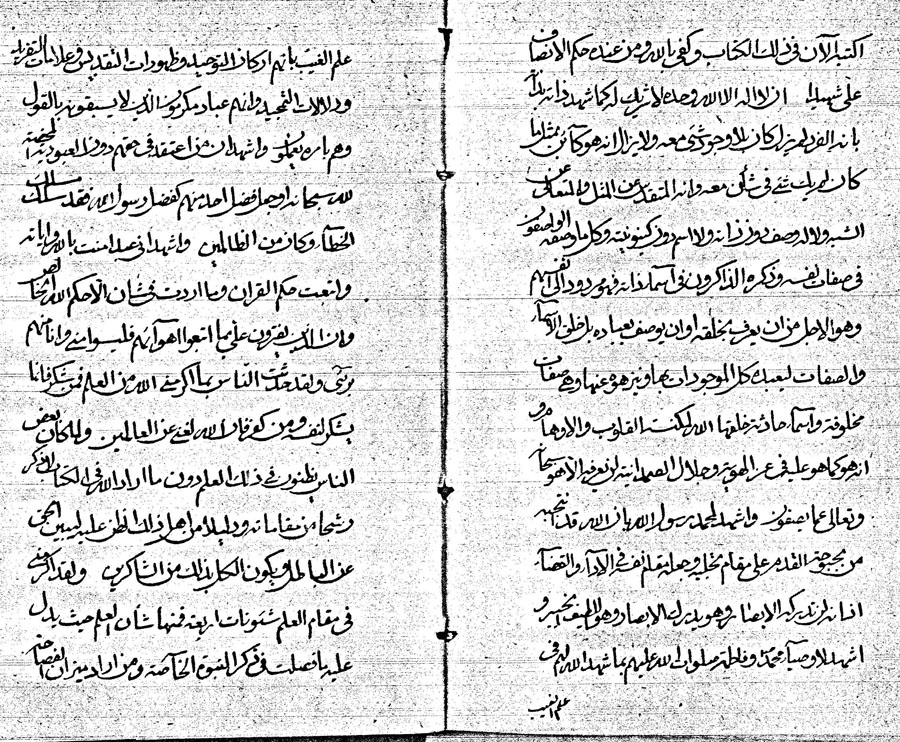 اكتب الآن فی ذلك الكتاب و كفی بالله و من عنده حكم الانصاف
علی شهيدا ان لا اله الا الله وحده لا شريك له كما شهد ذاته بذاته
بانه الفرد لم يزل كان بلا وجود شیء معه و لا يزال انه هو كائن بمثل ما
كان لم يك شیء فی شأن معه و انه المتقدس عن المثل و المتعالی عن
الشبه و لا له وصف دون ذاته و لا اسم دون كينونيته و كلما وصفه الواصفون
فی صفات نفسه و ذكره الذاكرون فی اسماء ذاته فهو مردود الی انفسهم
و هو الاجل من ان يعرف بخلقه او ان يوصف بعباده بل خلق الاسماء
و الصفات ليعبد كل الموجودات بها و ينزهوه عنها و هی صفات
مخلوقة و اسماء حادثة خلقها الله لمكنة القلوب و الاوهام و
انه هو كما هو عليه فی عز الهوية و جلال الصمدانية لن يعرفه الا هو سبحانه
و تعالی عما يصفون و اشهد لمحمد رسول الله بان الله قد انتجبه
من بحبوحة القدم علی مقام تجليه و جعله مقام نفسه فی الاداء و القضاء
اذ انه لن تدركه الابصار و هو يدرك الابصار و هو اللطيف الخبير و
اشهد لاوصياء محمد و فاطمة صلوات الله عليهم بما شهد الله لهم فی
علم الغيب
علم الغيب بانهم اركان التوحيد و ظهورات التقديس و علامات التفريد
و دلالات التمجيد و انهم عباد مكرمون الذين لا يسبقونه بالقول
و هم بامره يعملون و اشهد ان من اعتقد فی حقهم دون العبودية المحضة
لله سبحانه او جعل فضل احد منهم كفضل رسول الله فقد سلك مسلك
الخطاء و كان من الظالمين و اشهد انی عبد امنت بالله و اياته
و اتبعت حكم القران و ما اردت فی شأن الا حكم الله الخالص
و ان الذين يفترون علی بما اتبعوا اهوائهم فليسوا منی و انا منهم
بریء و لقد حدثت الناس بما اكرمنی الله من العلم فمن شكر فانما
يشكر لنفسه و من كفر فان الله لغنی عن العالمين و لما كان بعض
الناس يظنون فی ذلك العلم دون ما اراد الله فی الكتاب لاذكر
رشحا من مقاماته و دليلا من اهل ذلك الظن عليه ليبين الحق
عن الباطل و يكون الكل بذلك من الشاكرين و لقد اكرمنی
فی مقام العلم شئونات اربعة فمنها شأن العلم حيث يدل
عليه ما فصلت فی ذكر النبوة الخاصة و من اراد ميزان الفصاحة